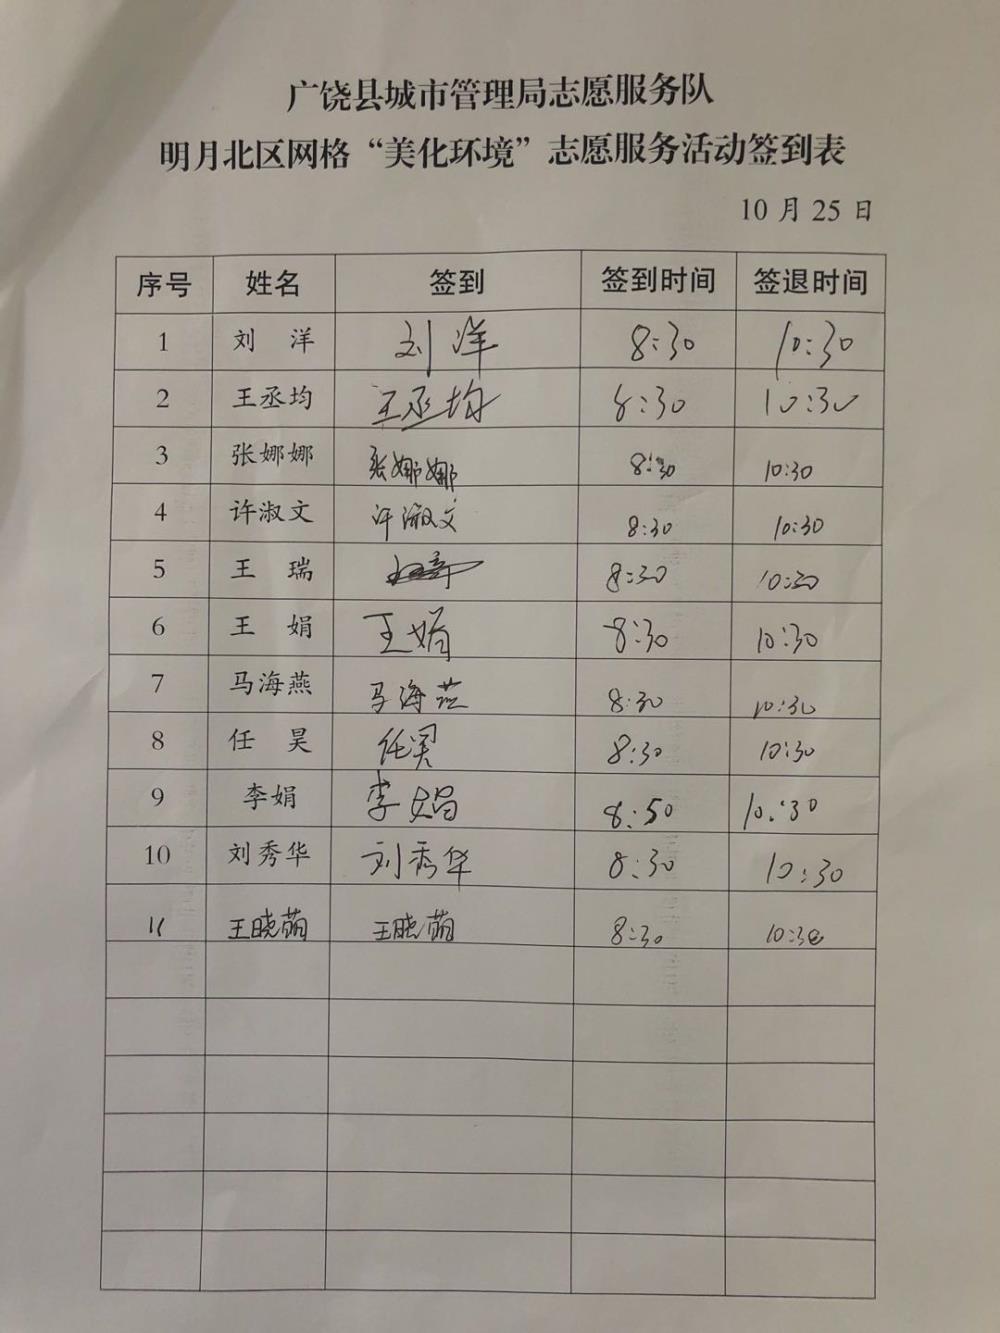 广饶县城市管理局志愿服务队
明月北区网格“美化环境”志愿服务活动签到表
10 月 25 日
序号 姓名 签到 签到时间 签退时间
1 刘 洋 刘洋 8:30 10:30
2 王丞均 王丞均 8:30 10:30
3 张娜娜 张娜娜 8:30 10:30
4 许淑文 许淑文 8:30 10:30
5 王 瑞 8:30 10:30
6 王 娟 王娟 8:30 10:30
7 马海燕 马海燕 8:30 10:30
8 任 昊 任昊 8:30 10:30
9 李娟 李娟 8:50 10:30
10 刘秀华 刘秀华 8:30 10:30
11 王晓萌 王晓萌 8:30 10:30